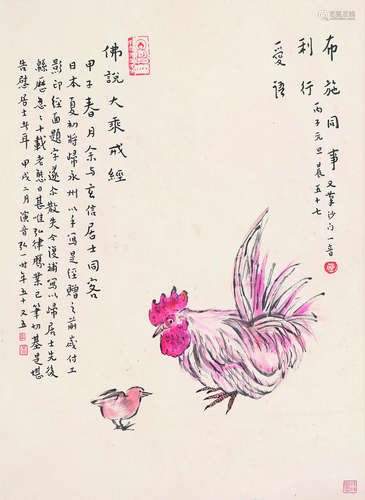 布施同事
利行 丙子元旦晨五十七
愛語
佛說大乘戒經
甲子春月余与玄信居士同客
日本夏初將歸永州以手寫是經贈之前歲付工
影印經面題字遂尔散失今復補寫以歸居士先後
緜歷忽忽十載老態日甚唯弘律應業已筆切基是堪
告慰居士耳 甲戌二月演音弘一卅年五十又五